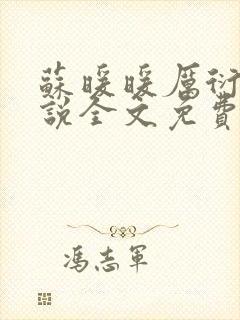 蘇暖暖厲衍
說全文免費
馮志軍